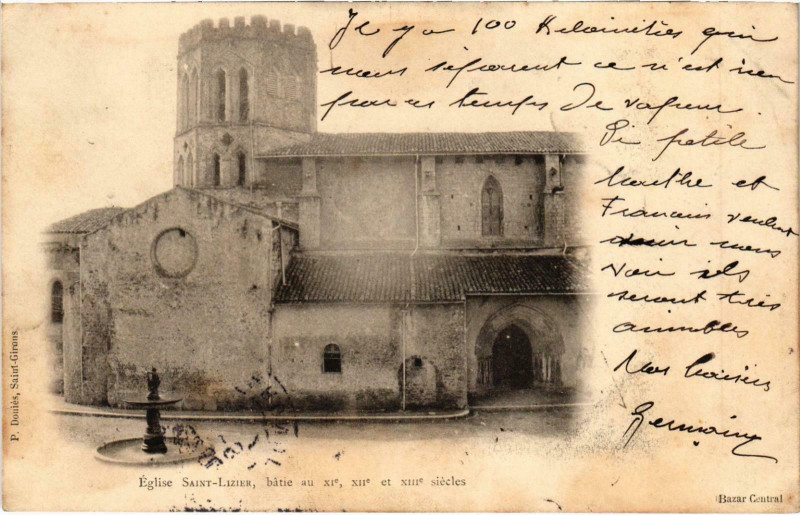 Il y a 100 Kilomètres qui
nous séparent ce n'est rien
par ces temps de vapeur.
Si petite
Marthe et
Francois veulent
venir nous
voir ils
seront très
aimables
Nos baisers
Germaine
P. Douiès, Saint-Girons
Église SAINT-LIZIER, bâtie au XIe, XIIe et XIIIe siècles
Bazar Central